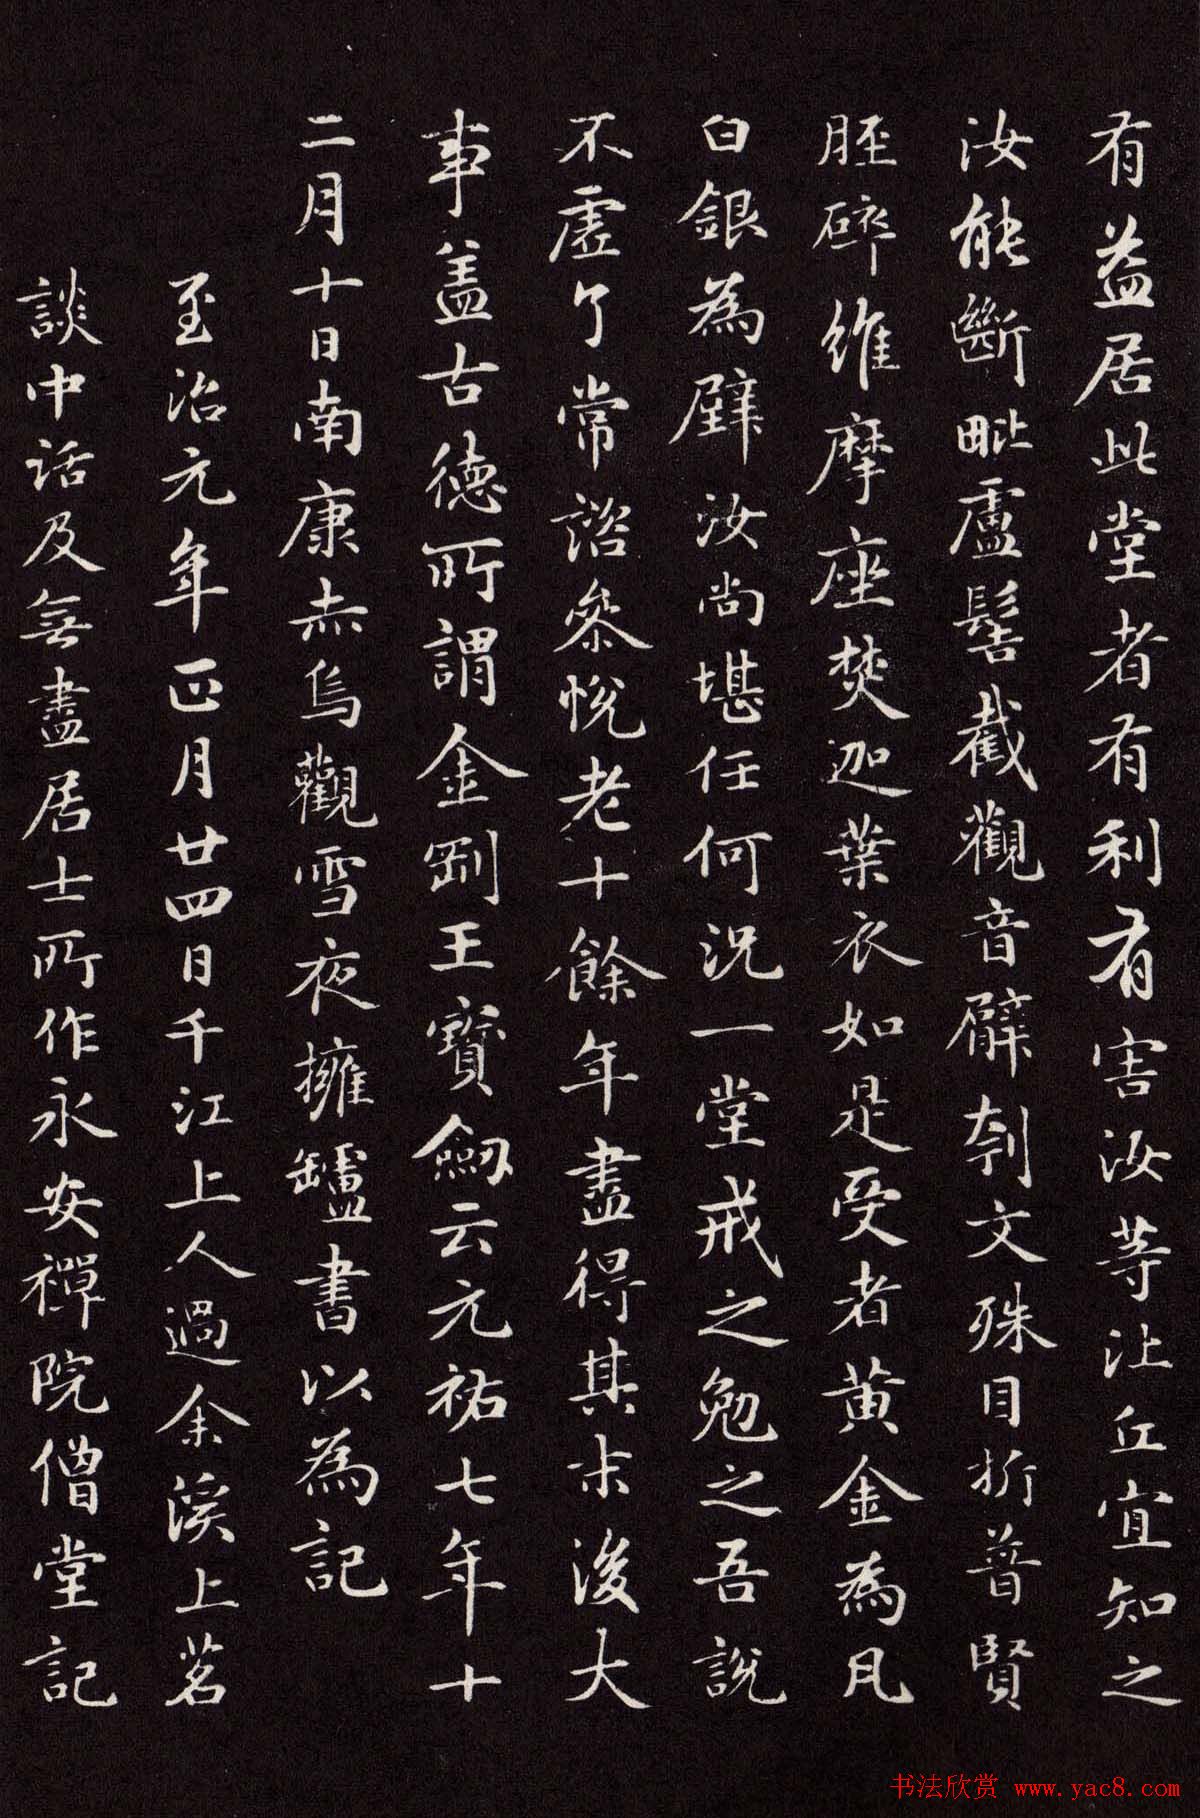 有益居此堂者有利有害汝等比丘宜知之
汝能斷毗盧髻截觀音臂刳文殊目折普賢
脛碎維摩座焚迦葉衣如是受者黄金為凡
白銀為壁汝尚堪任何況一堂戒之勉之吾說
不虛了常諮叅悅老十餘年盡得其末後大
事盖古德所謂金剛王寶劒云元祐七年十
二月十日南康赤烏觀雪夜擁罏書以為記
至治元年正月廿四日千江上人過余溪上茗
談中話及無盡居士所作永安禪院僧堂記
书法欣赏 www.yac8.com